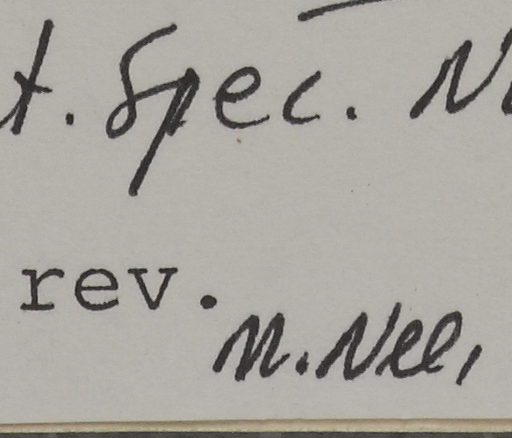 t. Spec. N
rev.
M. Nee,